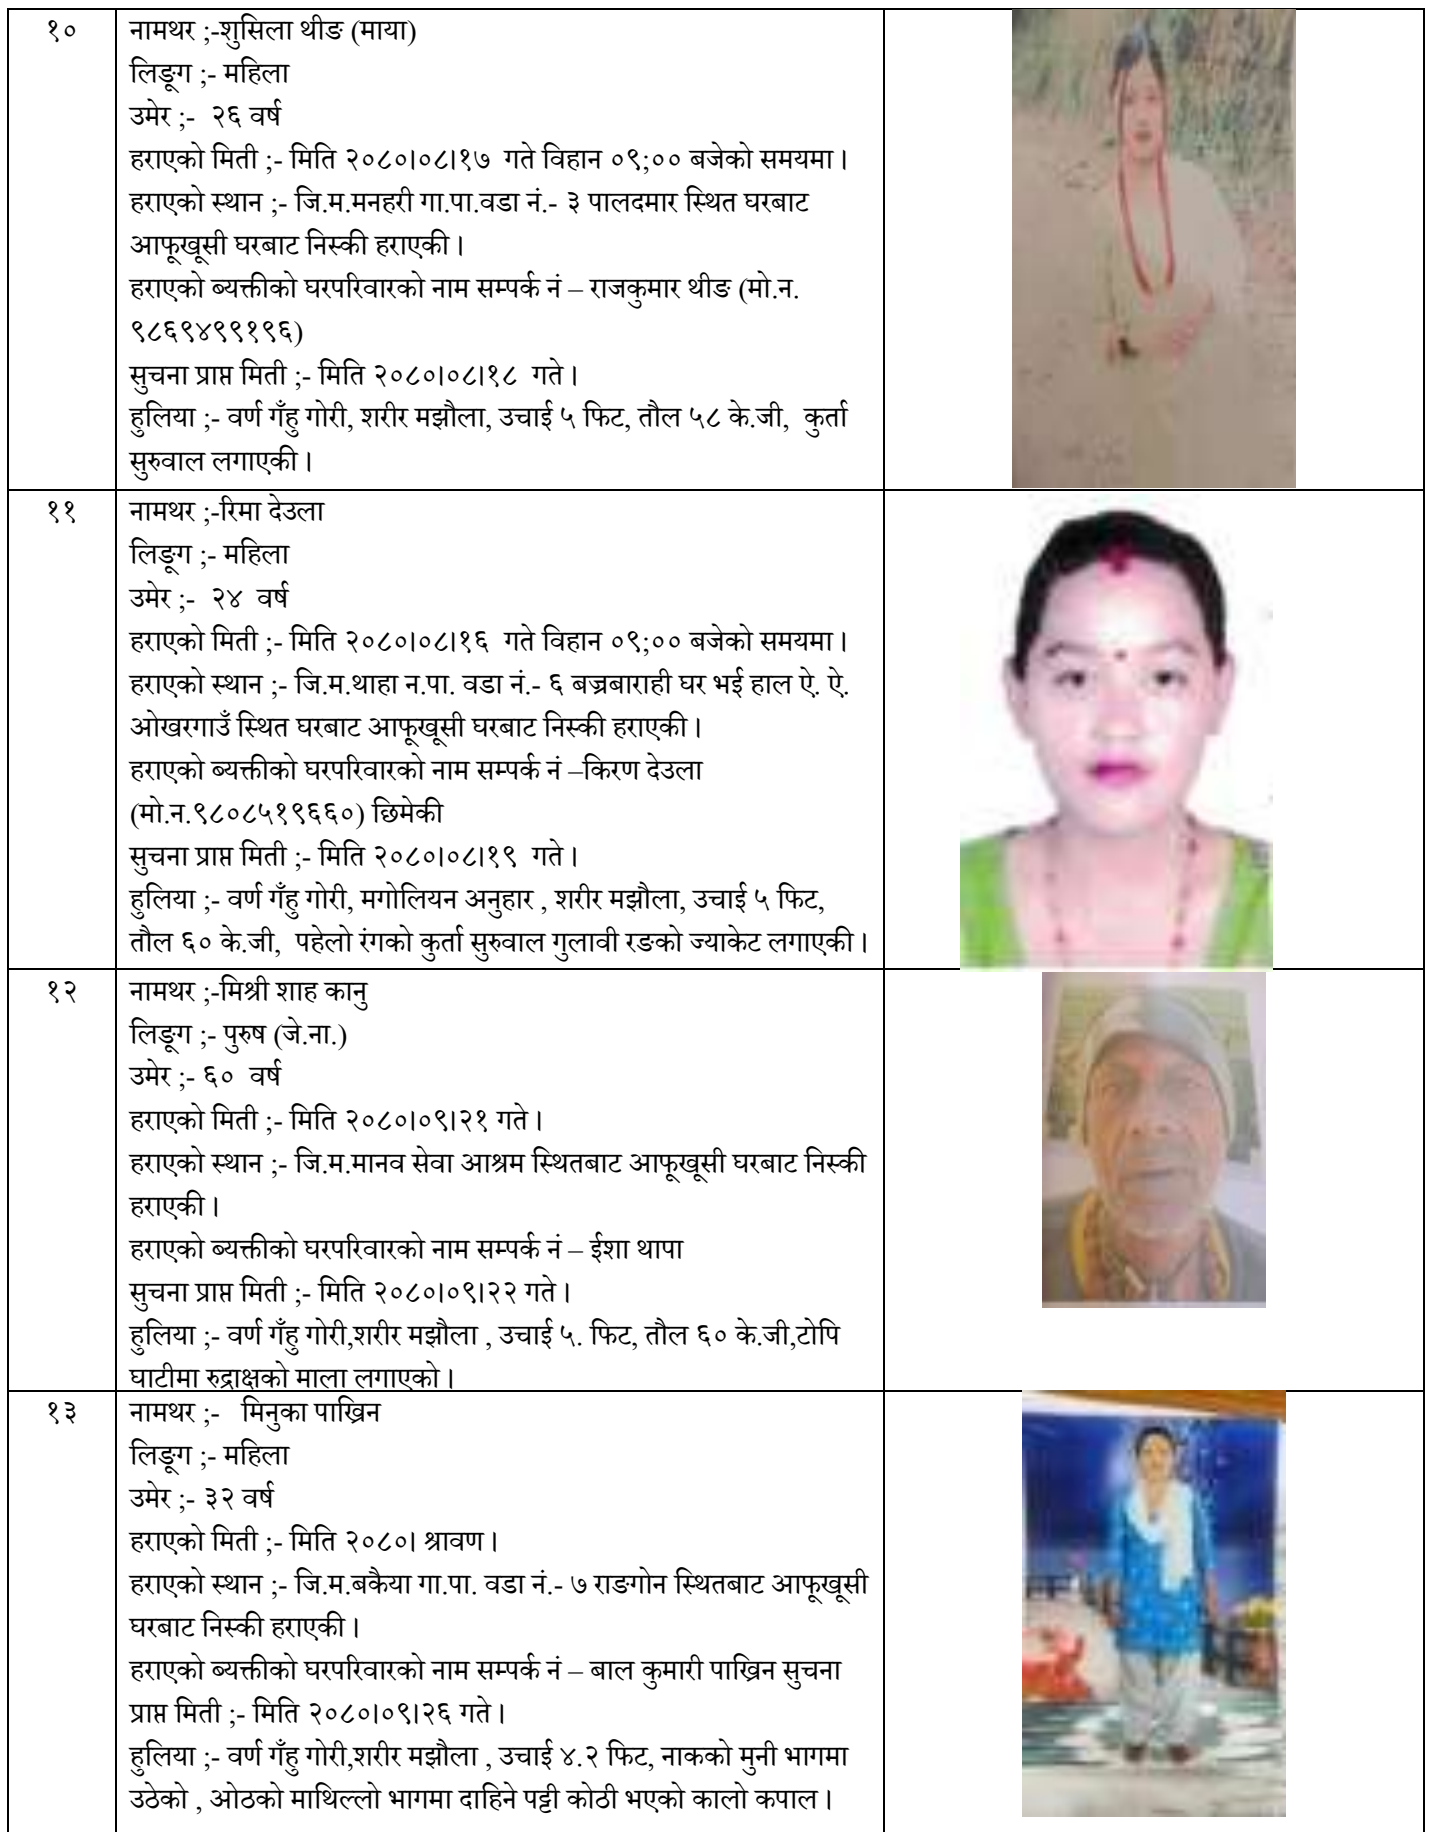 १०
नामथर ;-शुसिला थीङ (माया)
लिङ्ग ;- महिला
उमेर ;- २६ वर्ष
हराएको मिती ;- मिति २०८०।०८।१७ गते विहान ०९;०० बजेको समयमा।
हराएको स्थान ;- जि.म.मनहरी गा.पा.वडा नं.- ३ पालदमार स्थित घरबाट
आफूखूसी घरबाट निस्की हराएकी।
हराएको ब्यक्तीको घरपरिवारको नाम सम्पर्क नं – राजकुमार थीङ (मो.न.
९८६९४९९१९६)
सुचना प्राप्त मिती ;- मिति २०८०।०८।१८ गते।
हुलिया ;- वर्ण गँहु गोरी, शरीर मझौला, उचाई ५ फिट, तौल ५८ के.जी, कुर्ता
सुरुवाल लगाएकी।
११
नामथर ;-रिमा देउला
लिङ्ग ;- महिला
उमेर ;- २४ वर्ष
हराएको मिती ;- मिति २०८०।०८।१६ गते विहान ०९;०० बजेको समयमा।
हराएको स्थान ;- जि.म.थाहा न.पा. वडा नं.- ६ बज्रबाराही घर भई हाल ऐ. ऐ.
ओखरगाउँ स्थित घरबाट आफूखूसी घरबाट निस्की हराएकी।
हराएको ब्यक्तीको घरपरिवारको नाम सम्पर्क नं –किरण देउला
(मो.न.९८०८५१९६६०) छिमेकी
सुचना प्राप्त मिती ;- मिति २०८०।०८।१९ गते।
हुलिया ;- वर्ण गँहु गोरी, मगोलियन अनुहार , शरीर मझौला, उचाई ५ फिट,
तौल ६० के.जी, पहेलो रंगको कुर्ता सुरुवाल गुलावी रङको ज्याकेट लगाएकी।
१२
नामथर ;-मिश्री शाह कानु
लिङ्ग ;- पुरुष (जे.ना.)
उमेर ;- ६० वर्ष
हराएको मिती ;- मिति २०८०।०९।२१ गते।
हराएको स्थान ;- जि.म.मानव सेवा आश्रम स्थितबाट आफूखूसी घरबाट निस्की
हराएकी।
हराएको ब्यक्तीको घरपरिवारको नाम सम्पर्क नं – ईशा थापा
सुचना प्राप्त मिती ;- मिति २०८०।०९।२२ गते।
हुलिया ;- वर्ण गँहु गोरी,शरीर मझौला , उचाई ५. फिट, तौल ६० के.जी,टोपि
घाटीमा रुद्राक्षको माला लगाएको।
१३
नामथर ;- मिनुका पाख्रिन
लिङ्ग ;- महिला
उमेर ;- ३२ वर्ष
हराएको मिती ;- मिति २०८०। श्रावण।
हराएको स्थान ;- जि.म.बकैया गा.पा. वडा नं.- ७ राङगोन स्थितबाट आफूखूसी
घरबाट निस्की हराएकी।
हराएको ब्यक्तीको घरपरिवारको नाम सम्पर्क नं – बाल कुमारी पाख्रिन सुचना
प्राप्त मिती ;- मिति २०८०।०९।२६ गते।
हुलिया ;- वर्ण गँहु गोरी,शरीर मझौला , उचाई ४.२ फिट, नाकको मुनी भागमा
उठेको , ओठको माथिल्लो भागमा दाहिने पट्टी कोठी भएको कालो कपाल।